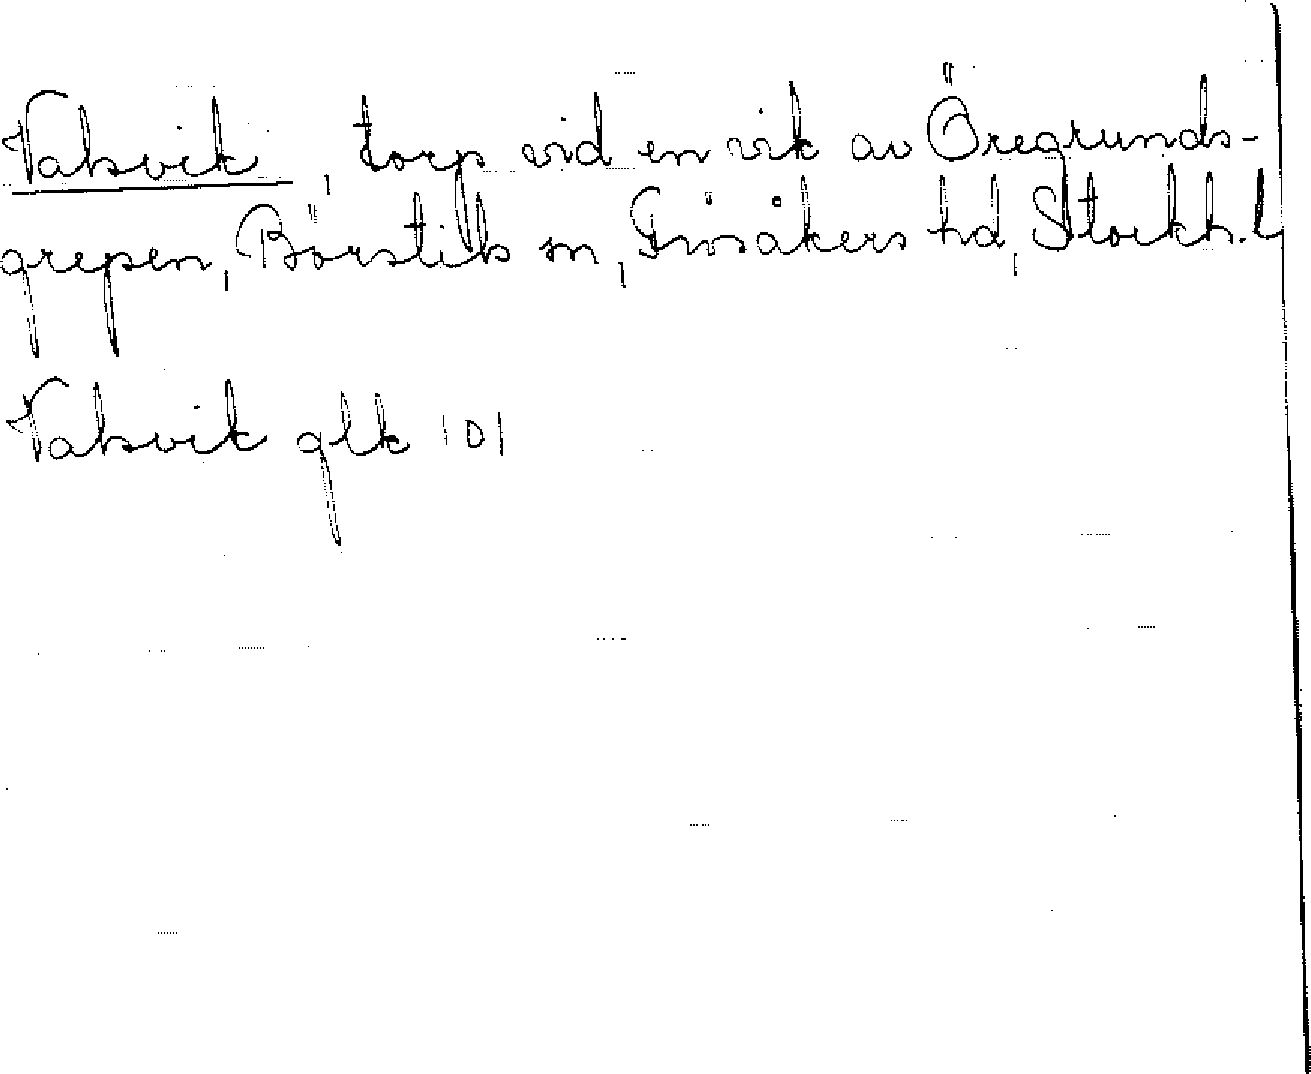 Valsvik, torp vid en vik av Öregrunds-
grepen, Börstils sn, Frösåkers hd, Stockh. l
Valsvik glk 101